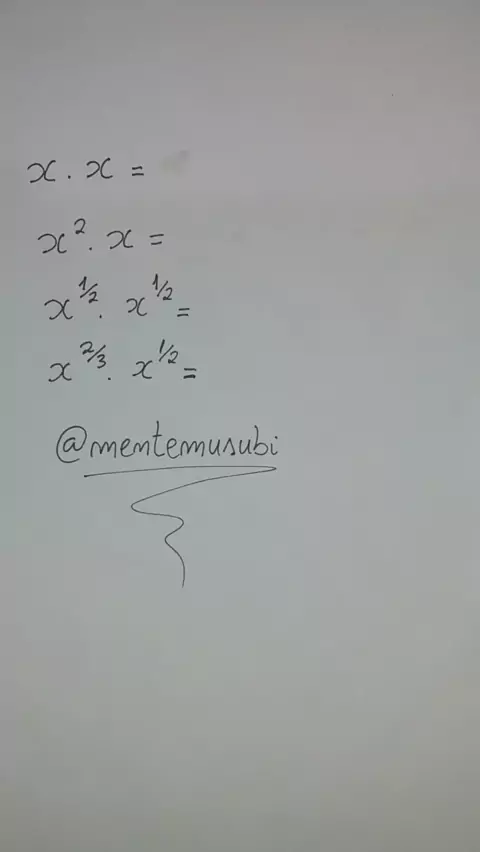 x . x =
x² . x =
x^1/2 . x^1/2 =
x^2/3 . x^1/2 =
@mentemusubi